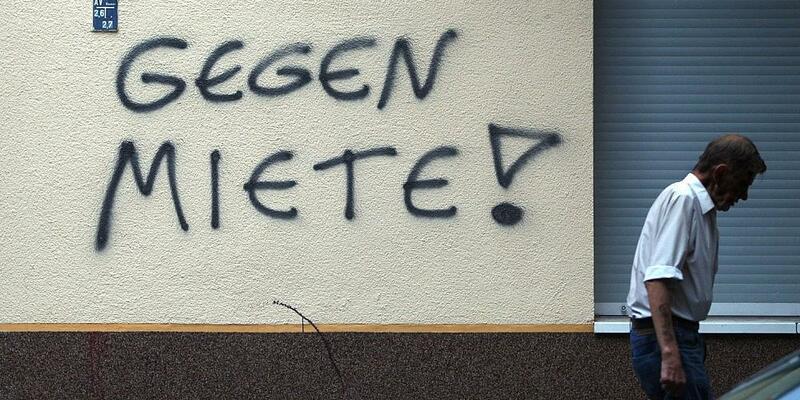 AV
2,6
2,7
GEGEN
MIETE!